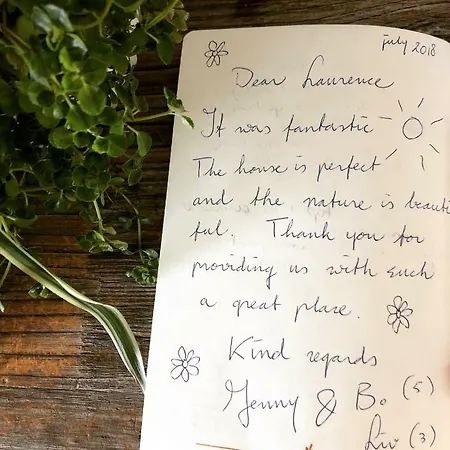 july 2018
Dear Laurence
It was fantastic
The house is perfect
and the nature is beauti
ful. Thank you for
providing us with such
a great place.
Kind regards
Yenny & B. (5)
Liv (3)